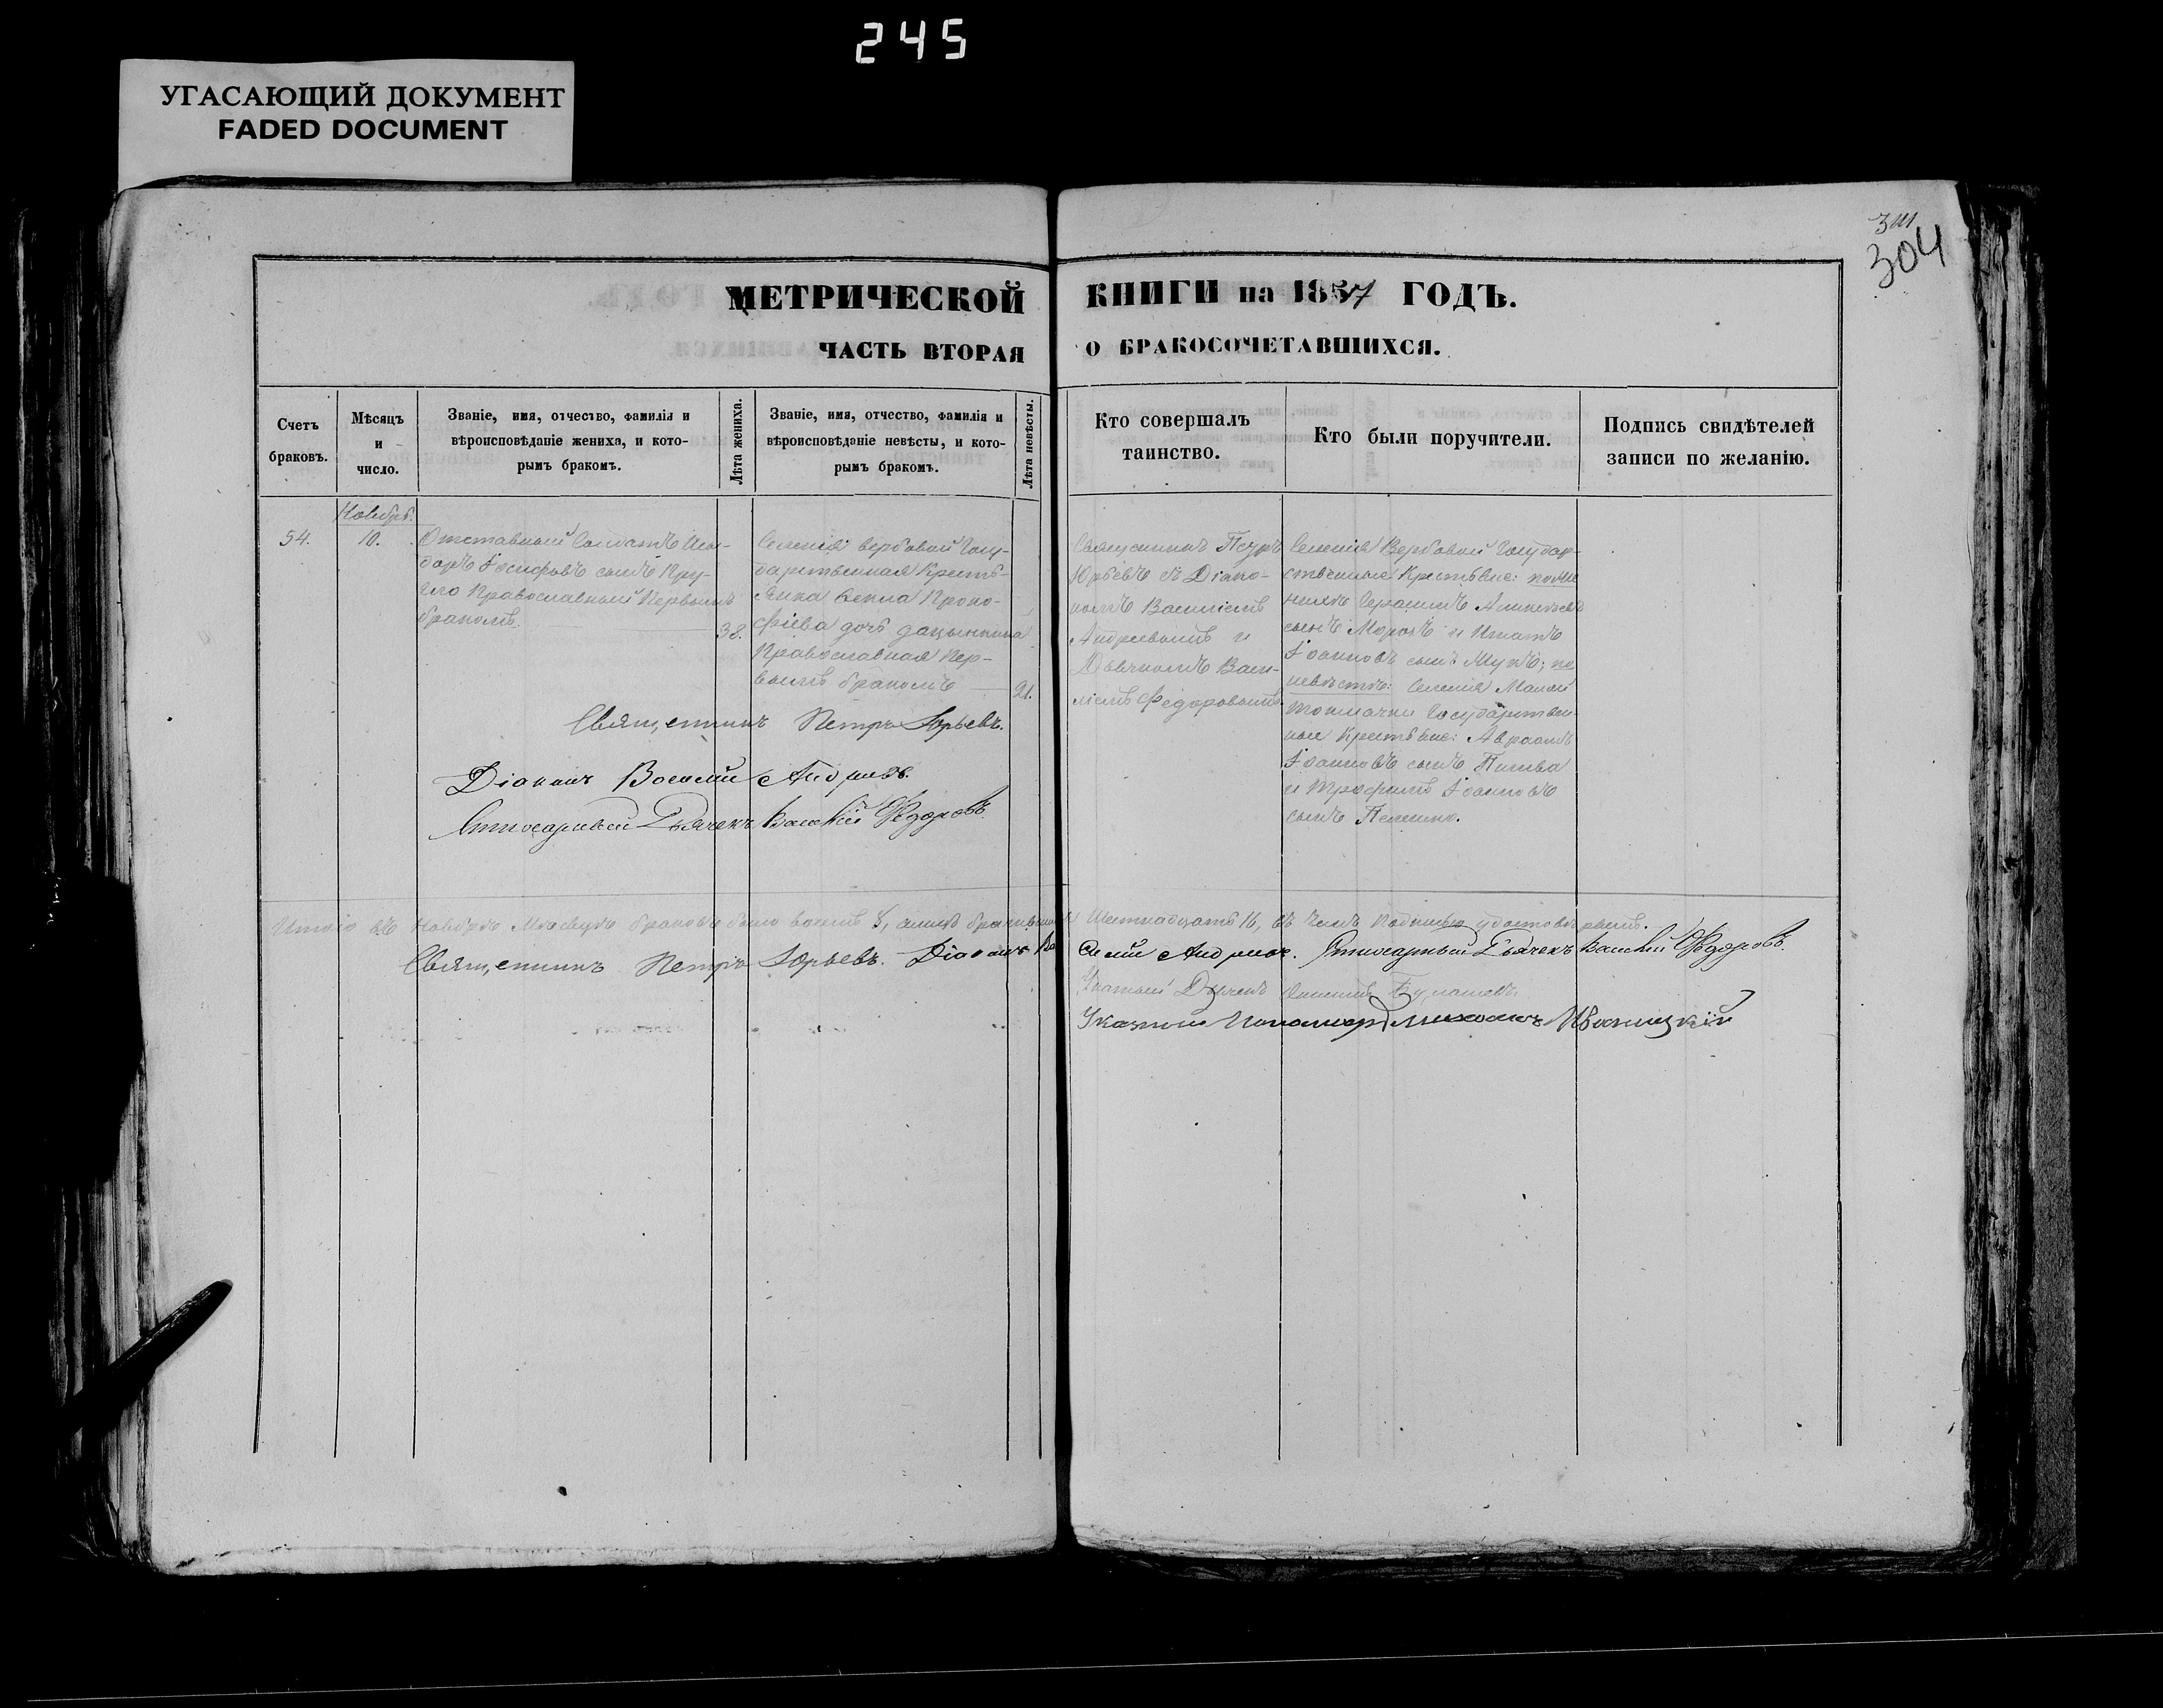 245
УГАСАЮЩИЙ ДОКУМЕНТ
FADED DOCUMENT
304
МЕТРИЧЕСКОЙ КНИГИ на 1857 ГОДЪ.
ЧАСТЬ ВТОРАЯ О БРАКОСОЧЕТАВШИХСЯ.
Счетъ
браковъ.
Мѣсяцъ
и
число.
Званіе, имя, отчество, фамилія и
вѣроисповѣданіе жениха, и кото-
рымъ бракомъ.
Лѣта жениха.
Званіе, имя, отчество, фамилія и
вѣроисповѣданіе невѣсты, и кото-
рымъ бракомъ.
Лѣта невѣсты.
Кто совершалъ
таинство.
Кто были поручители.
Подпись свидѣтелей
записи по желанію.
54.
Ноябрь.
10.
Отставный Солдатъ Иси-
доръ Іосифовъ сынъ Кру-
Православный Первымъ
бракомъ.
38.
Селенія Вербовой Госу-
дарственная Кресть-
янка Фекла Проко-
фіева дочь
Православная Пер-
вымъ бракомъ
21.
Священникъ Петръ
Юрьевъ съ Діако-
номъ Василіемъ
Андреевымъ и
Дьячкомъ Васи-
ліемъ Федоровымъ.
Селенія Вербовой Государ-
ственные Крестьяне: по же-
нихѣ Герасимъ
сынъ Морозъ и Игнатъ
Іоанновъ сынъ по
невѣстѣ: Селенія Малой
Токмачки Государствен-
ные Крестьяне: Авраамъ
Іоанновъ сынъ
и Трофимъ Іоанновъ
сынъ
Священникъ Петръ Юрьевъ.
Діаконъ Василій Андреевъ.
Дьячекъ Василій Федоровъ.
Итого въ Ноябрѣ Мѣсяцѣ браковъ было восемь 8, Шестнадцать 16, въ чемъ подписью удостовѣряемъ.
Священникъ Петръ Юрьевъ. Діаконъ Василій Андреевъ. Дьячекъ Василій Федоровъ.
Дьячекъ
Указный Пономарь